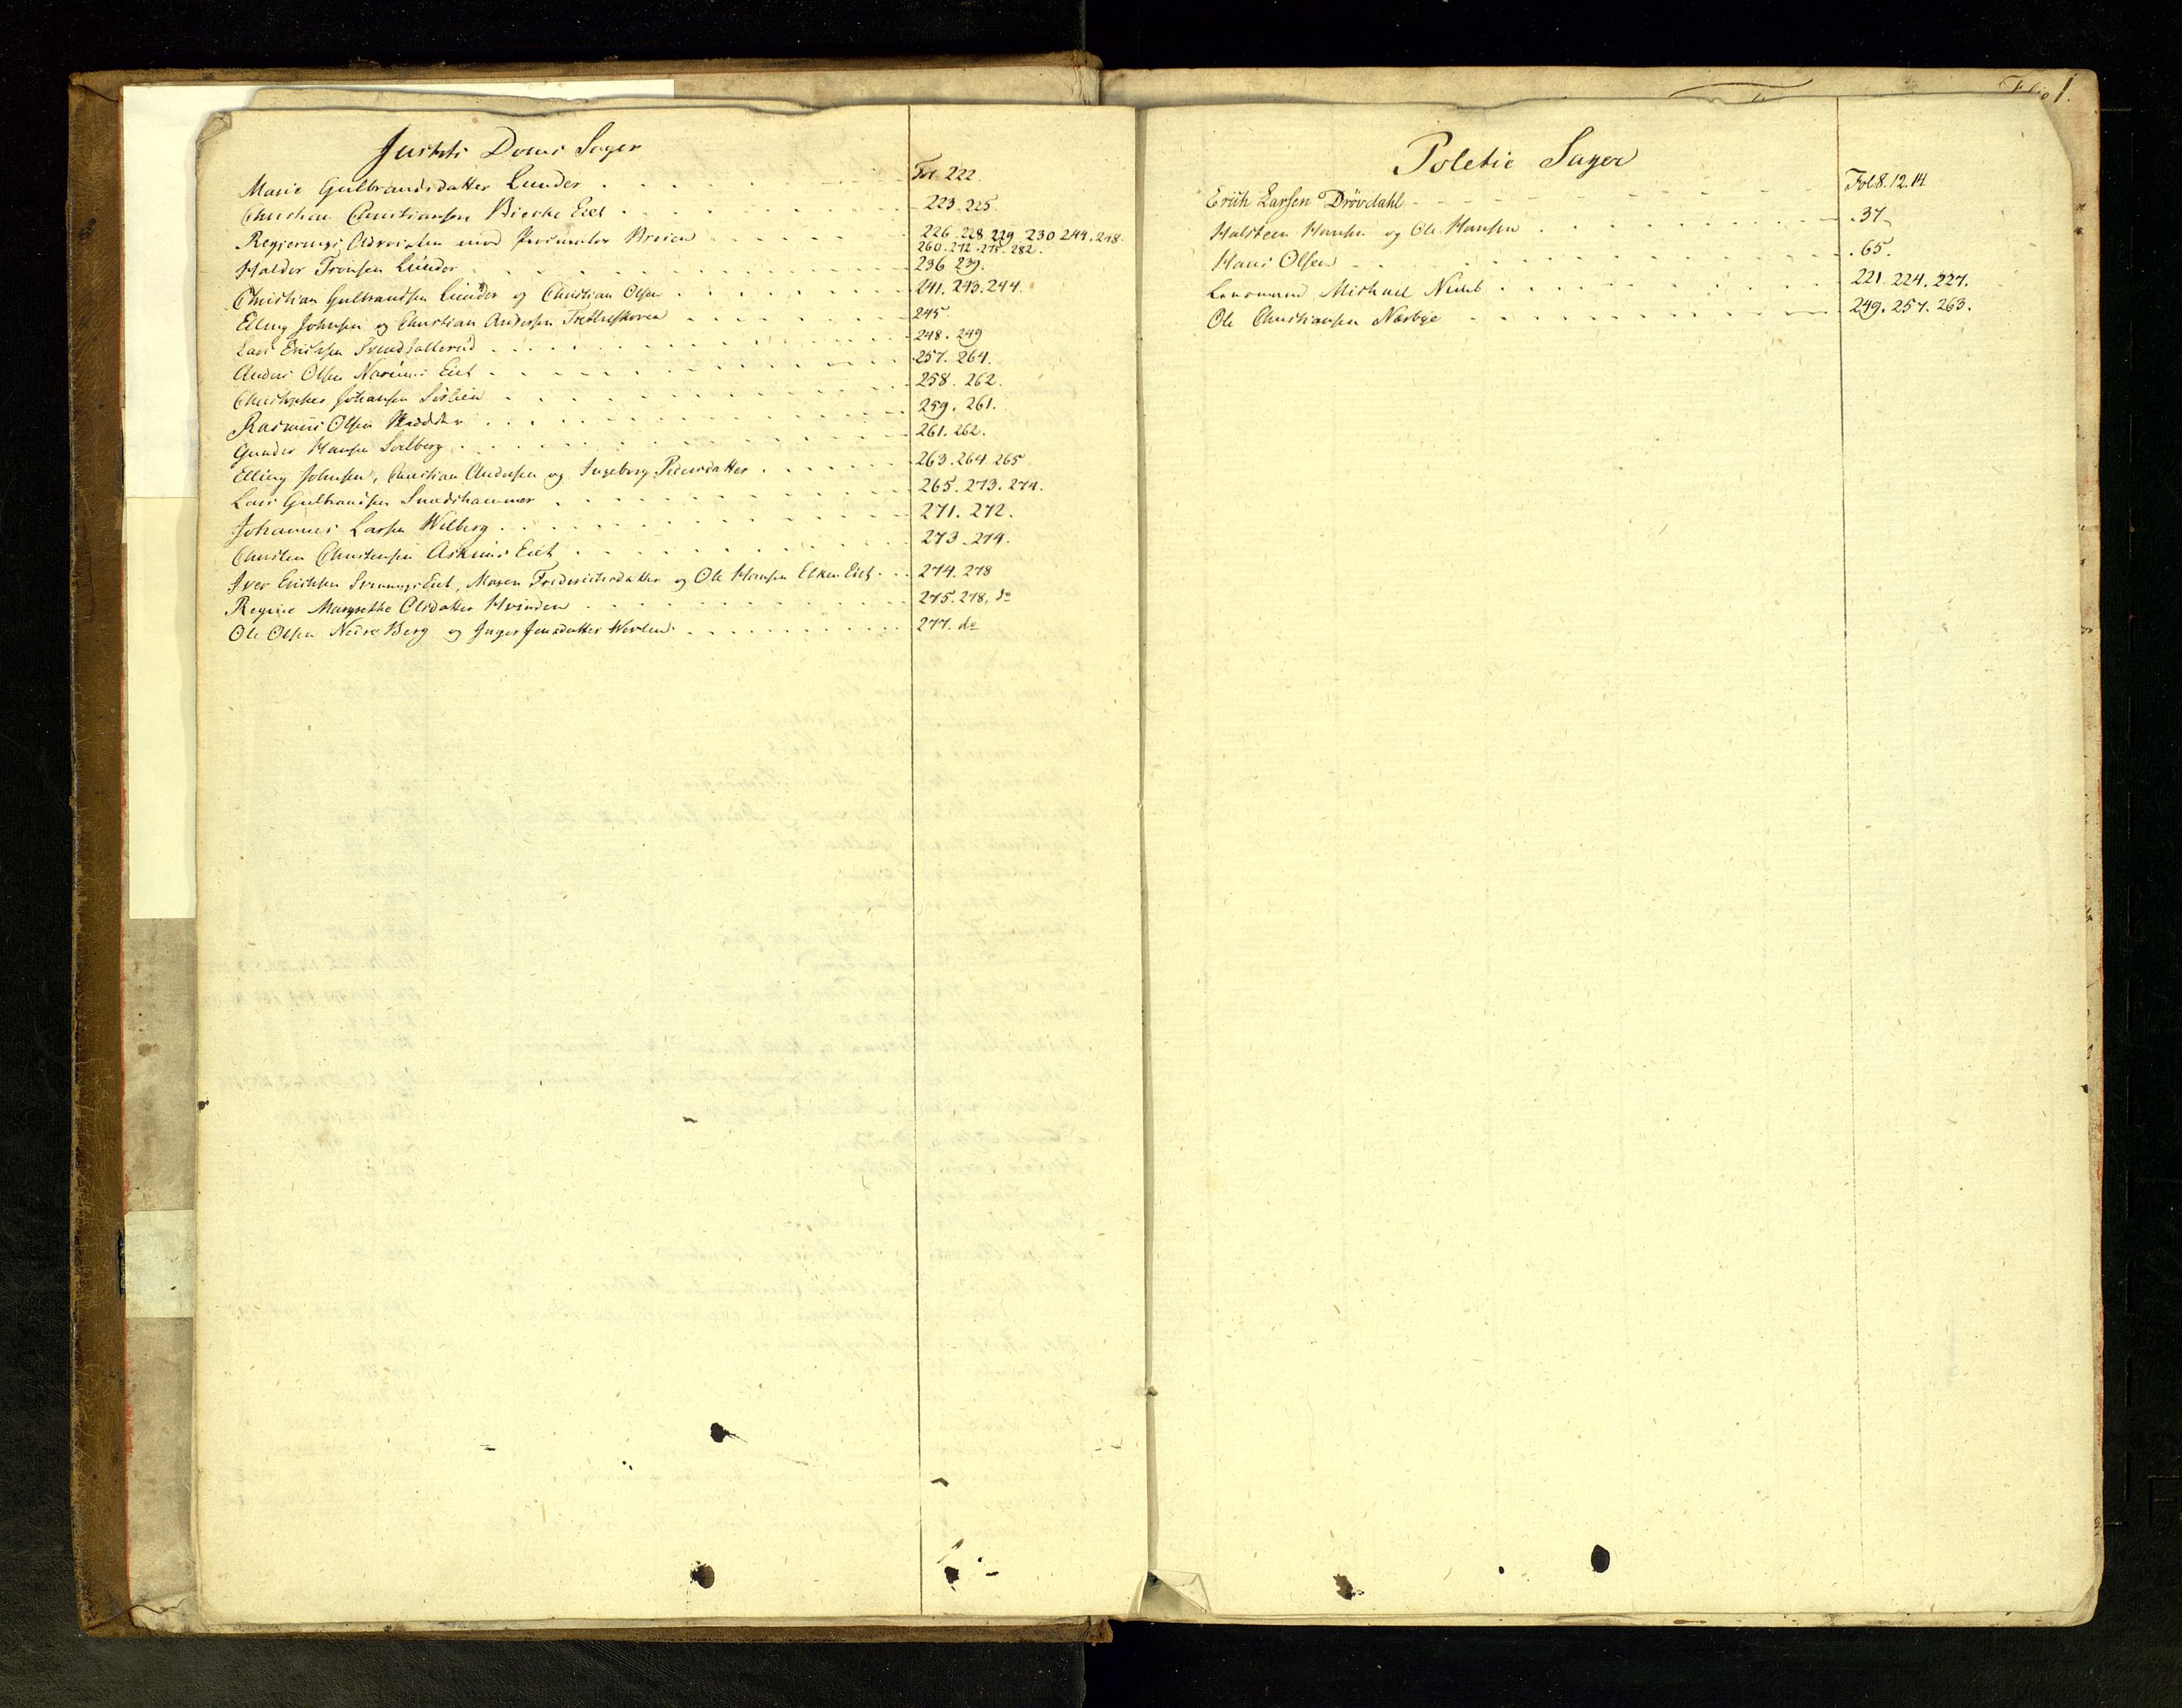 Justits Doms Sager
Marie Gulbrandsdatter Lunder Fol. 222.
Christian Christiansen Birche Eiet 223. 225
Regjerings Advocaten mod Procurator Breien 226. 228 229 230 244. 248.
260. 272. 275. 282.
Haldor Tronsen Lunder 236 239.
Christian Gulbrandsen Lunder og Christian Olsen 241. 243. 244
Elling Johnsen og Christian Andersen 245
Lars Erichsen 248. 249
Anders Olsen Eiet 257. 264.
Christopher Johansen 258. 262.
Rasmus Olsen 259. 261.
Gunder Hansen Solberg 261. 262.
Elling Johnsen, Christian Andersen og Ingeborg Pedersdatter 263. 264. 265
Lars Gulbrandsen 265. 273. 274.
Johannes Larsen Wilberg 271. 272.
Christen Christensen Askims Eiet 273. 274.
Iver Erichsen Eiet, Maren Frederichsdatter og Ole Hansen Elken Eiet 274. 278
Regine Margrethe Olsdatter Hvinden 275. 278, do
Ole Olsen Nedre Berg og Inger Jensdatter 277. do
Folio 1.
Poletie Sager
Erich Larsen Drövdahl Fol. 8. 12. 14.
Halsteen Hansen og Ole Hansen 37
Hans Olsen 65.
Lensmand Michael 221. 224. 227.
Ole Christiansen Nærbye 249. 257. 263.